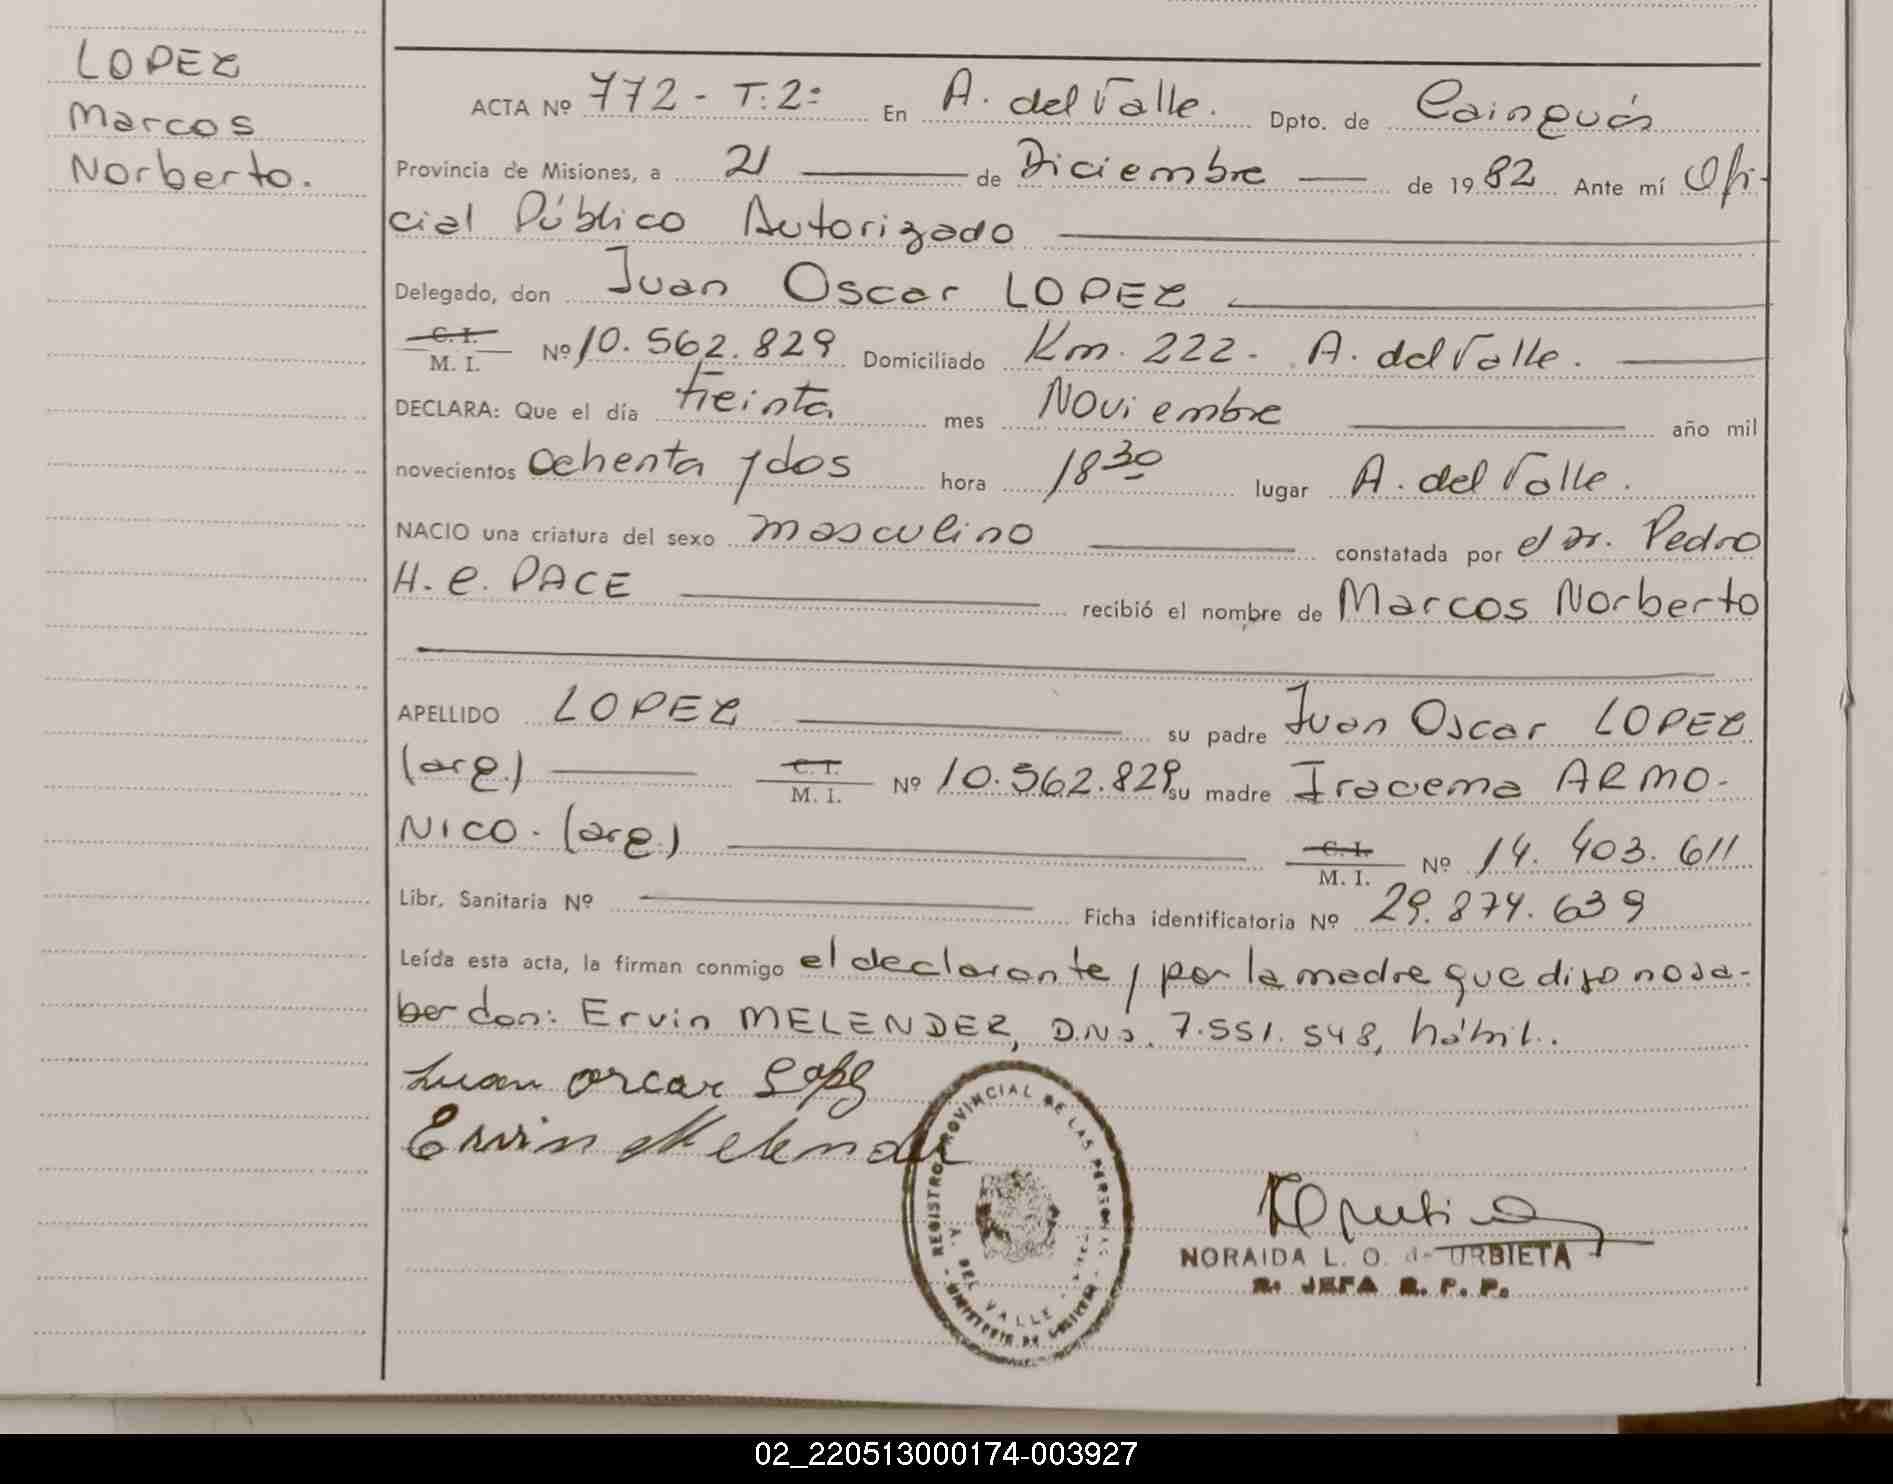 LOPEZ
Marcos
Norberto.
ACTA Nº 772 - T: 2º En A. del Valle. Dpto. de Cainguás
Provincia de Misiones, a 21 de Diciembre de 1982 Ante mí Ofi-
cial Público Autorizado
Delegado, don Juan Oscar LOPEZ
C. I.
M. I. Nº 10.562.829 Domiciliado Km. 222 - A. del Valle.
DECLARA: Que el día treinta mes Noviembre año mil
novecientos ochenta y dos hora 18 30 lugar A. del Valle.
NACIO una criatura del sexo masculino constatada por el Dr. Pedro
H. C. PACE recibió el nombre de Marcos Norberto
APELLIDO LOPEZ su padre Juan Oscar LOPEZ
(arg.) C. I.
M. I. Nº 10.562.829 su madre Iracema ARMO-
NICO. (arg.) C. I.
M. I. Nº 14.403.611
Libr. Sanitaria Nº Ficha identificatoria Nº 29.874.639
Leída esta acta, la firman conmigo el declarante y por la madre que dijo no sa-
ber don: Ervin MELENDEZ, D.N.I. 7.551.548, hábil.
Juan Oscar Lopez
Ervin Melendez
REGISTRO PROVINCIAL DE LAS PERSONAS
A. DEL VALLE
MINISTERIO DE GOBIERNO
NORAIDA L. O. de URBIETA
R. JEFA R. P. P.
02_220513000174-003927